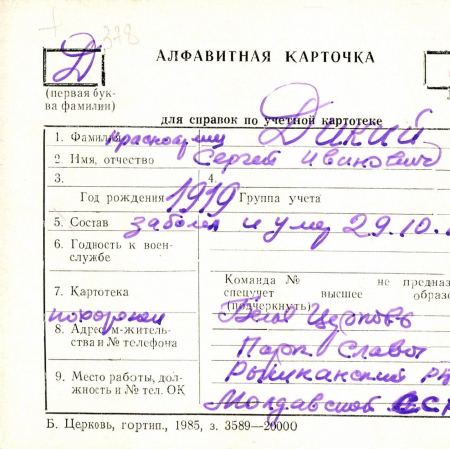 378
АЛФАВИТНАЯ КАРТОЧКА
Д
(первая бук-
ва фамилии)
для справок по учетной картотеке
1. Фамилия Красноармеец Дикий
2. Имя, отчество Сергей Иванович
3.
4.
Год рождения 1919 Группа учета
5. Состав заболел и умер 29.10.
6. Годность к воен-
службе
Команда № не предназ
спецучет высшее образо
(подчеркнуть)
7. Картотека
похоронен Белая Церковь
8. Адрес м-житель-
ства и № телефона
Парк Славы
9. Место работы, дол-
жность и № тел. ОК
Рышканский
Молдавской ССР
Б. Церковь, гортип., 1985, з. 3589—20000